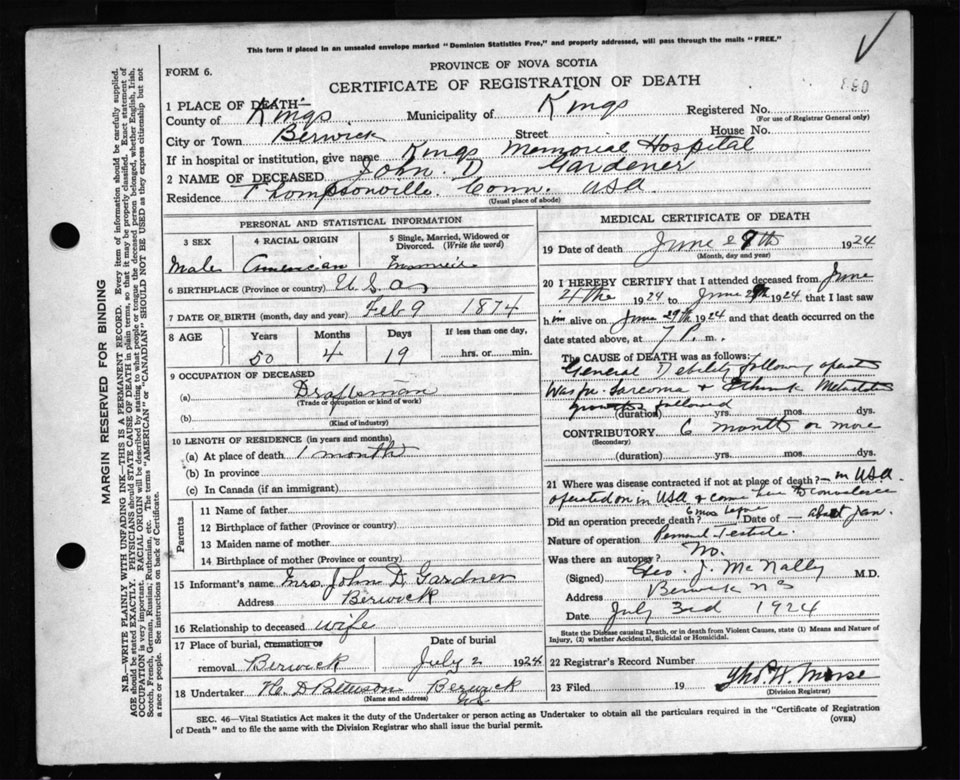 This form if placed in an unsealed envelope marked "Dominion Statistics Free," and properly addressed, will pass through the mails "FREE."
PROVINCE OF NOVA SCOTIA
FORM 6.
CERTIFICATE OF REGISTRATION OF DEATH
1 PLACE OF DEATH—
County of Kings Municipality of Kings Registered No.
(For use of Registrar General only)
City or Town Berwick Street House No.
If in hospital or institution, give name Kings Memorial Hospital
2 NAME OF DECEASED John D Gardener
Residence Thompsonville Conn. USA
(Usual place of abode)
PERSONAL AND STATISTICAL INFORMATION
3 SEX 4 RACIAL ORIGIN 5 Single, Married, Widowed or Divorced. (Write the word)
Male American
6 BIRTHPLACE (Province or country) U.S.A
7 DATE OF BIRTH (month, day and year) Feb 9 1874
8 AGE Years Months Days If less than one day,
50 4 19 hrs. or min.
9 OCCUPATION OF DECEASED
(a) Draftsman
(Trade or occupation or kind of work)
(b)
(Kind of industry)
10 LENGTH OF RESIDENCE (in years and months)
(a) At place of death 1 month
(b) In province
(c) In Canada (if an immigrant)
Parents
11 Name of father
12 Birthplace of father (Province or country)
13 Maiden name of mother
14 Birthplace of mother (Province or country)
15 Informant's name Mrs John D. Gardner
Address Berwick
16 Relationship to deceased wife
17 Place of burial, cremation or removal Berwick
Date of burial July 2 1924
18 Undertaker H. D Patterson Berwick NS
(Name and address)
MEDICAL CERTIFICATE OF DEATH
19 Date of death June 29th 1924
(Month, day and year)
20 I HEREBY CERTIFY that I attended deceased from June
1924 to June 29th 1924, that I last saw
him alive on June 29th 1924 and that death occurred on the
date stated above, at 7 P. m.
The CAUSE of DEATH was as follows:
General Debility following
Sarcoma &
followed
(duration) yrs. mos. dys.
CONTRIBUTORY 6 months or more
(Secondary)
(duration) yrs. mos. dys.
21 Where was disease contracted if not at place of death?— in USA
operated on in USA & came here to convalesce
Did an operation precede death? Date of — about Jan.
Nature of operation Removal Testicle
Was there an autopsy? No.
(Signed) Geo. J. McNally M.D.
Address Berwick NS
Date July 3rd 1924
State the Disease causing Death, or in death from Violent Causes, state (1) Means and Nature of Injury, (2) whether Accidental, Suicidal or Homicidal.
22 Registrar's Record Number
23 Filed 19 Morse
(Division Registrar)
SEC. 46—Vital Statistics Act makes it the duty of the Undertaker or person acting as Undertaker to obtain all the particulars required in the "Certificate of Registration
of Death" and to file the same with the Division Registrar who shall issue the burial permit.
(OVER)
MARGIN RESERVED FOR BINDING
N.B.—WRITE PLAINLY WITH UNFADING INK—THIS IS A PERMANENT RECORD. Every item of information should be carefully supplied.
AGE should be stated EXACTLY. PHYSICIANS should STATE CAUSE OF DEATH in plain terms, so that it may be properly classified. Exact statement of
OCCUPATION is very important. RACIAL ORIGIN will be described by stating to what people or tongue the deceased person belonged, whether English, Irish,
Scotch, French, German, Russian, Ruthenian, etc. The terms "AMERICAN" or "CANADIAN" SHOULD NOT BE USED as they express citizenship but not
a race or people. See instructions on back of Certificate.